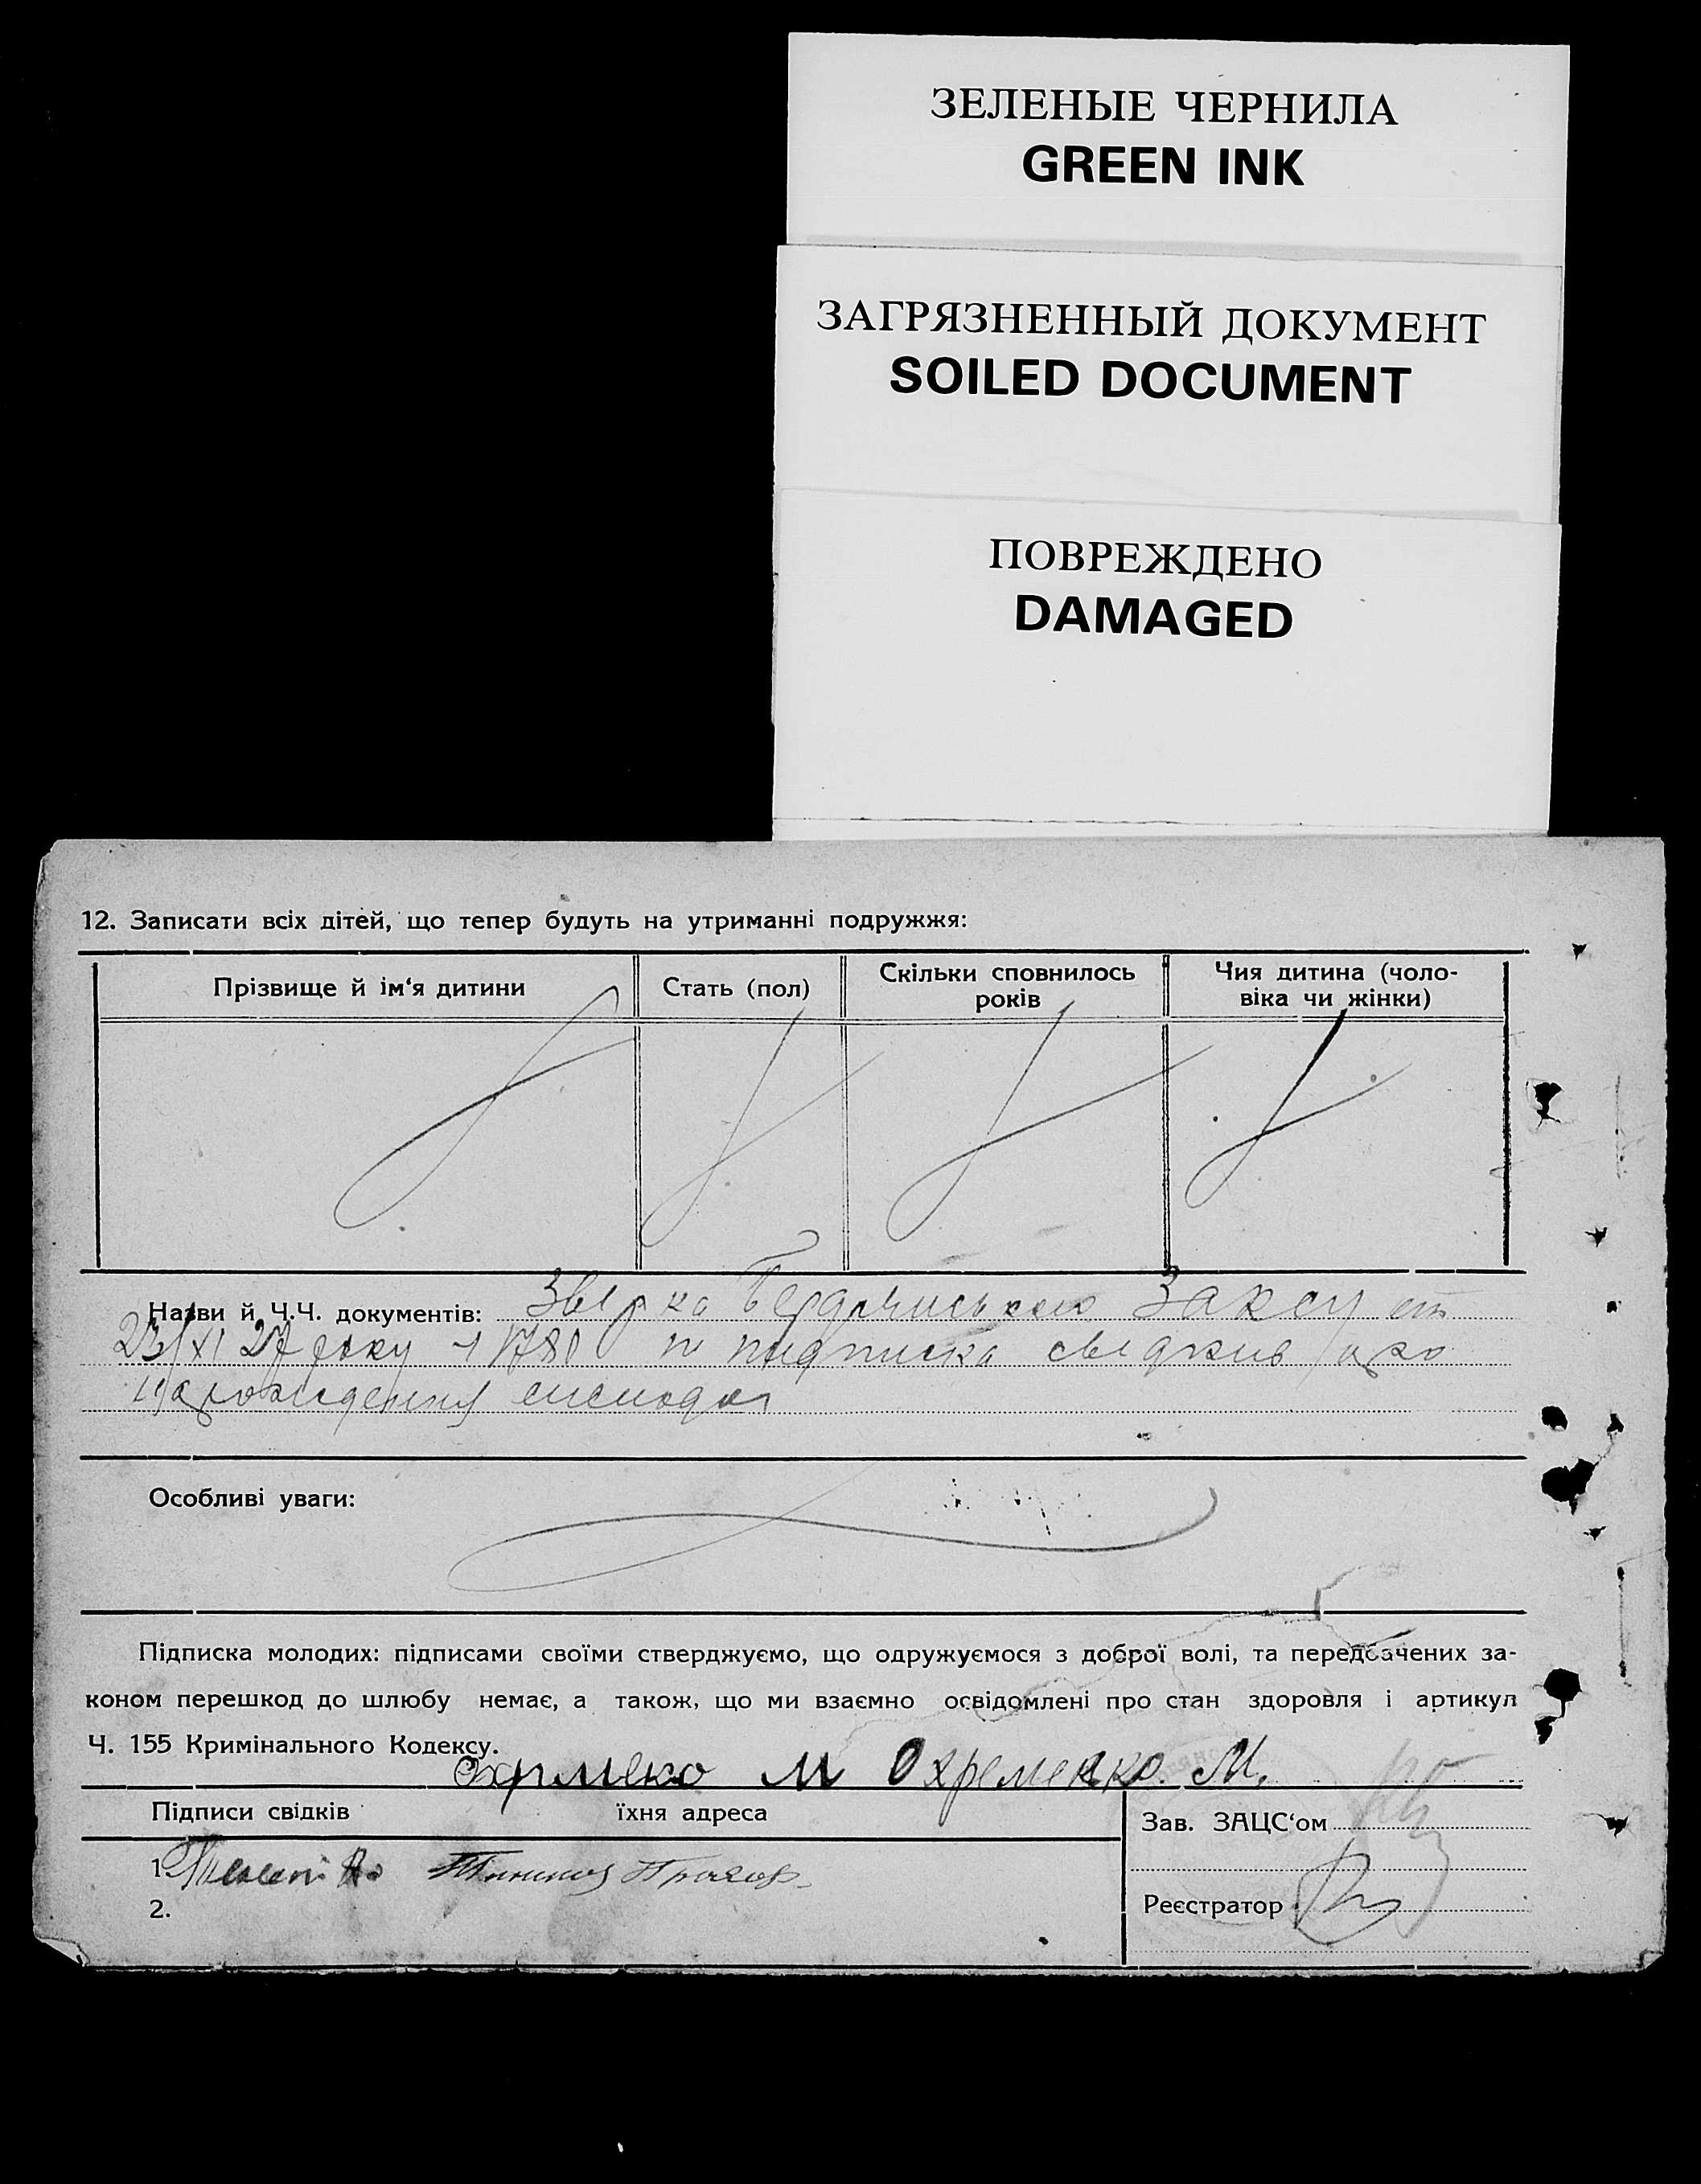 ЗЕЛЕНЫЕ ЧЕРНИЛА
GREEN INK
ЗАГРЯЗНЕННЫЙ ДОКУМЕНТ
SOILED DOCUMENT
ПОВРЕЖДЕНО
DAMAGED
12. Записати всіх дітей, що тепер будуть на утриманні подружжя:
Прізвище й ім‘я дитини
Стать (пол)
Скільки сповнилось
років
Чия дитина (чоло-
віка чи жінки)
Назви й Ч.Ч. документів: Загсу от
23/XI 27 року 1780 подписка
Особливі уваги:
Підписка молодих: підписами своїми стверджуємо, що одружуємося з доброї волі, та передбачених за-
коном перешкод до шлюбу немає, а також, що ми взаємно освідомлені про стан здоровля і артикул
Ч. 155 Кримінального Кодексу.
М Охременко. М.
Підписи свідків їхня адреса
Зав. ЗАЦС‘ом
1.
2.
Реєстратор